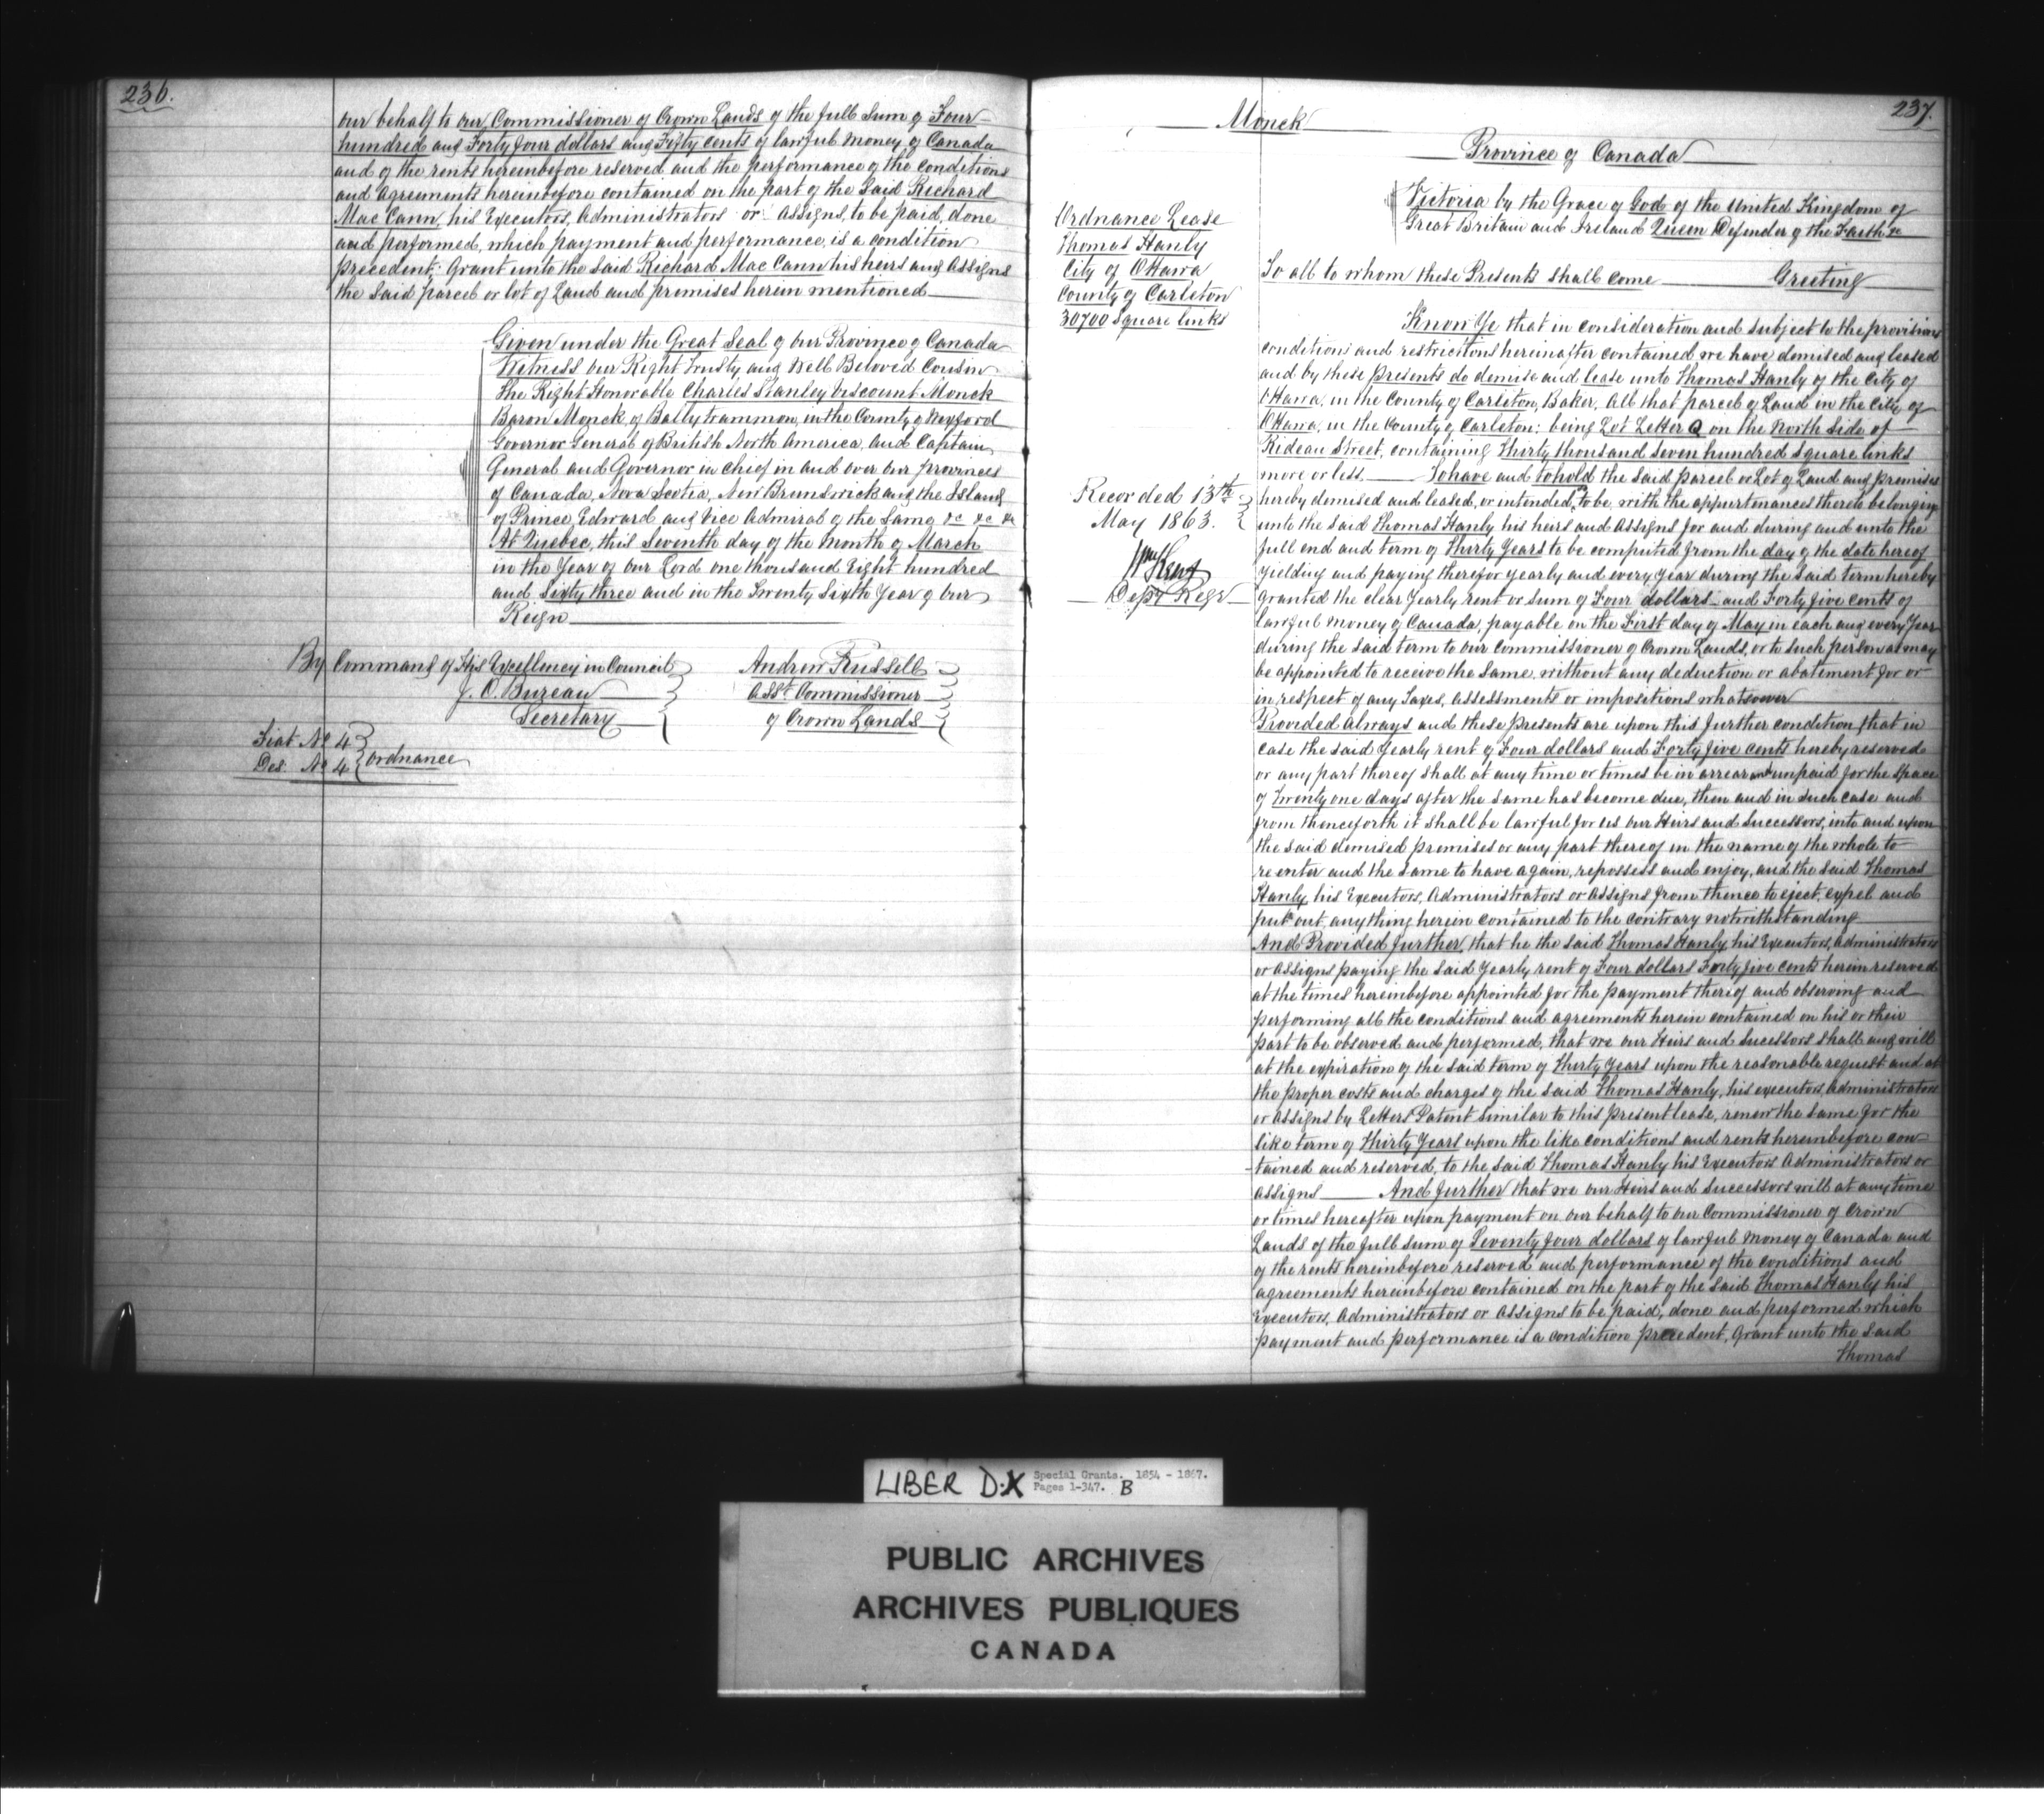 236.
our behalf to our Commissioner of Crown Lands of the full Sum of Four
hundred and Forty four dollars and Fifty cents of lawful money of Canada
and of the rents hereinbefore reserved and the performance of the conditions
and agreements hereinbefore contained on the part of the Said Richard
Mac Cann, his Executors, Administrators or Assigns, to be paid, done
and performed, which payment and performance, is a condition
precedent; Grant unto the Said Richard Mac Cann his heirs and Assigns
the Said parcel or lot of Land and premises herein mentioned
Given under the Great Seal of our Province of Canada
Witness our Right Trusty and Well Beloved Cousin
The Right Honorable Charles Stanley Viscount Monck
Baron Monck of Ballytrammon, in the County of Wexford
Governor General of British North America, and Captain
General and Governor in Chief in and over our provinces
of Canada, Nova Scotia, New Brunswick and the Island
of Prince Edward and Vice Admiral of the Same &c &c &c
At Quebec, this Seventh day of the Month of March
in the Year of our Lord one thousand Eight hundred
and Sixty three and in the Twenty Sixth Year of our
Reign
By Command of His Excellency in Council
J. O. Bureau
Secretary
Andrew Russell
Asst. Commissioner
of Crown Lands
Fiat No 4
Des. No 4
Ordnance
237.
Monck
Province of Canada
Victoria by the Grace of God of the United Kingdom of
Great Britain and Ireland Queen Defender of the Faith &c
Ordnance Lease
Thomas Hanly
City of Ottawa
County of Carleton
30700 Square links
To all to whom these Presents shall come Greeting
Know Ye that in consideration and subject to the provisions
conditions and restrictions hereinafter contained we have demised and leased
and by these presents do demise and lease unto Thomas Hanly of the City of
Ottawa, in the County of Carleton, Baker, All that parcel of Land in the City of
Ottawa, in the County of Carleton; being Lot Letter Q on the North Side of
Rideau Street, containing Thirty thousand Seven hundred Square links
more or less. To have and to hold the Said parcel or Lot of Land and premises
hereby demised and leased, or intended so to be, with the appurtenances thereto belonging
unto the Said Thomas Hanly his heirs and Assigns for and during and unto the
full end and term of Thirty Years to be computed from the day of the date hereof
Yielding and paying therefor yearly and every year during the Said term hereby
granted the clear Yearly rent or Sum of Four dollars and Forty five cents of
lawful money of Canada, payable on the First day of May in each and every Year
during the Said term to our Commissioner of Crown Lands, or to such person as may
be appointed to receive the same, without any deduction or abatement for or
in respect of any Taxes, assessments or impositions whatsoever
Recorded 13th
May 1863.
Wm Kent
Depy Regr
Provided always and these presents are upon this further condition, that in
case the Said Yearly rent of Four dollars and Forty five cents hereby reserved
or any part thereof shall at any time or times be in arrear and unpaid for the Space
of Twenty one days after the same has become due, then and in such case and
from thenceforth it shall be lawful for us our Heirs and Successors, into and upon
the Said demised premises or any part thereof in the name of the whole to
re enter and the same to have again, repossess and enjoy, and the Said Thomas
Hanly, his Executors, Administrators or Assigns from thence to eject, expel and
put out, anything herein contained to the contrary notwithstanding
And Provided further, that he the Said Thomas Hanly, his Executors, Administrators
or Assigns paying the Said Yearly rent of Four dollars Forty five cents herein reserved
at the times hereinbefore appointed for the payment thereof and observing and
performing all the conditions and agreements herein contained on his or their
part to be observed and performed, that we our Heirs and Sucessors shall and will
at the expiration of the Said term of Thirty Years upon the reasonable request and at
the proper costs and charges of the Said Thomas Hanly, his executors, Administrators
or Assigns by Letters Patent similar to this present lease, renew the same for the
like term of Thirty Years upon the like conditions and rents hereinbefore con-
-tained and reserved, to the Said Thomas Hanly his Executors Administrators or
Assigns And further that we our Heirs and Successors will at any time
or times hereafter upon payment on our behalf to our Commissioner of Crown
Lands of the full Sum of Seventy four dollars of lawful money of Canada and
of the rents hereinbefore reserved and performance of the conditions and
agreements hereinbefore contained on the part of the Said Thomas Hanly his
Executors, Administrators or Assigns to be paid, done and performed which
payment and performance is a condition precedent, Grant unto the Said
Thomas
LIBER D.X Special Grants. 1854 - 1867.
Pages 1-347. B
PUBLIC ARCHIVES
ARCHIVES PUBLIQUES
CANADA